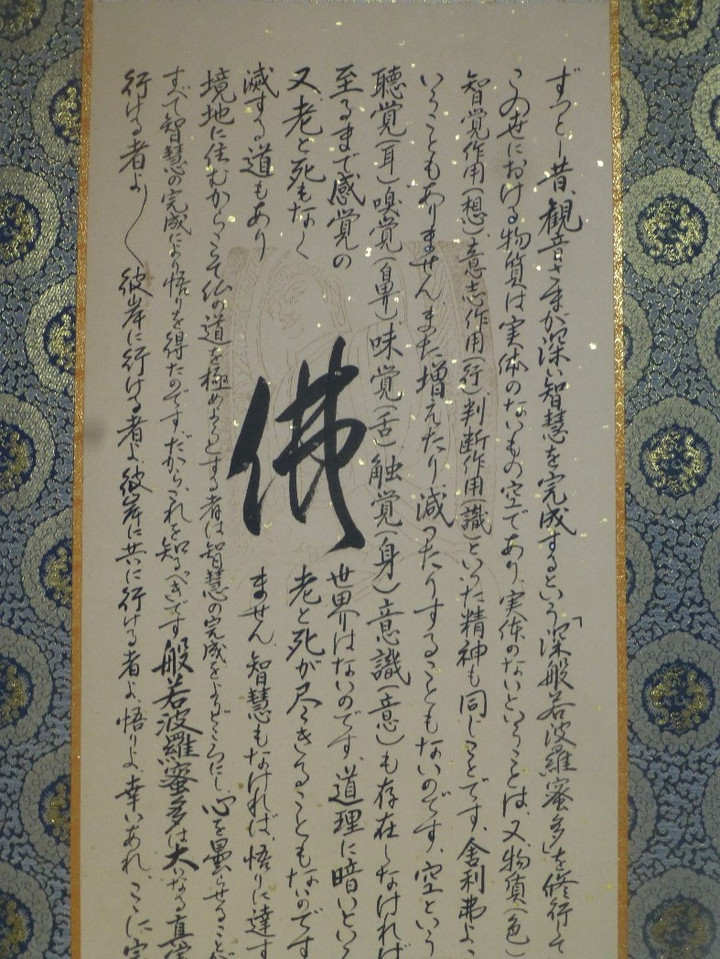 ずっと昔、観音さまが深い智慧を完成するという「深般若波羅蜜多」を修行して
この世における物質は実体のないもの空であり、実体のないということは、又物質(色)
智覚作用(想)意志作用(行)判断作用(識)といった精神も同じことです、舎利弗よ、
いうこともありません、また増えたり減ったりすることもないのです、空という
聴覚(耳)嗅覚(鼻)味覚(舌)触覚(身)意識(意)も存在しなければ
至るまで感覚の世界はないのです、道理に暗いという
又老と死もなく老と死が尽きることもないのです
滅する道もありません、智慧もなければ、悟りに達す
境地に住むからこそ仏の道を極めようとする者は智慧の完成をよりどころにし、心を曇らせることが
すべて智慧の完成により悟りを得たのです、だからこれを知るべきです、般若波羅蜜多は大いなる真
行ける者よ〱彼岸に行ける者よ彼岸に共に行ける者よ、悟りよ、幸いあれ、ここに
佛